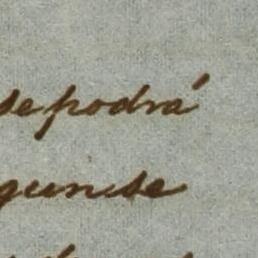 se podrá
gun se